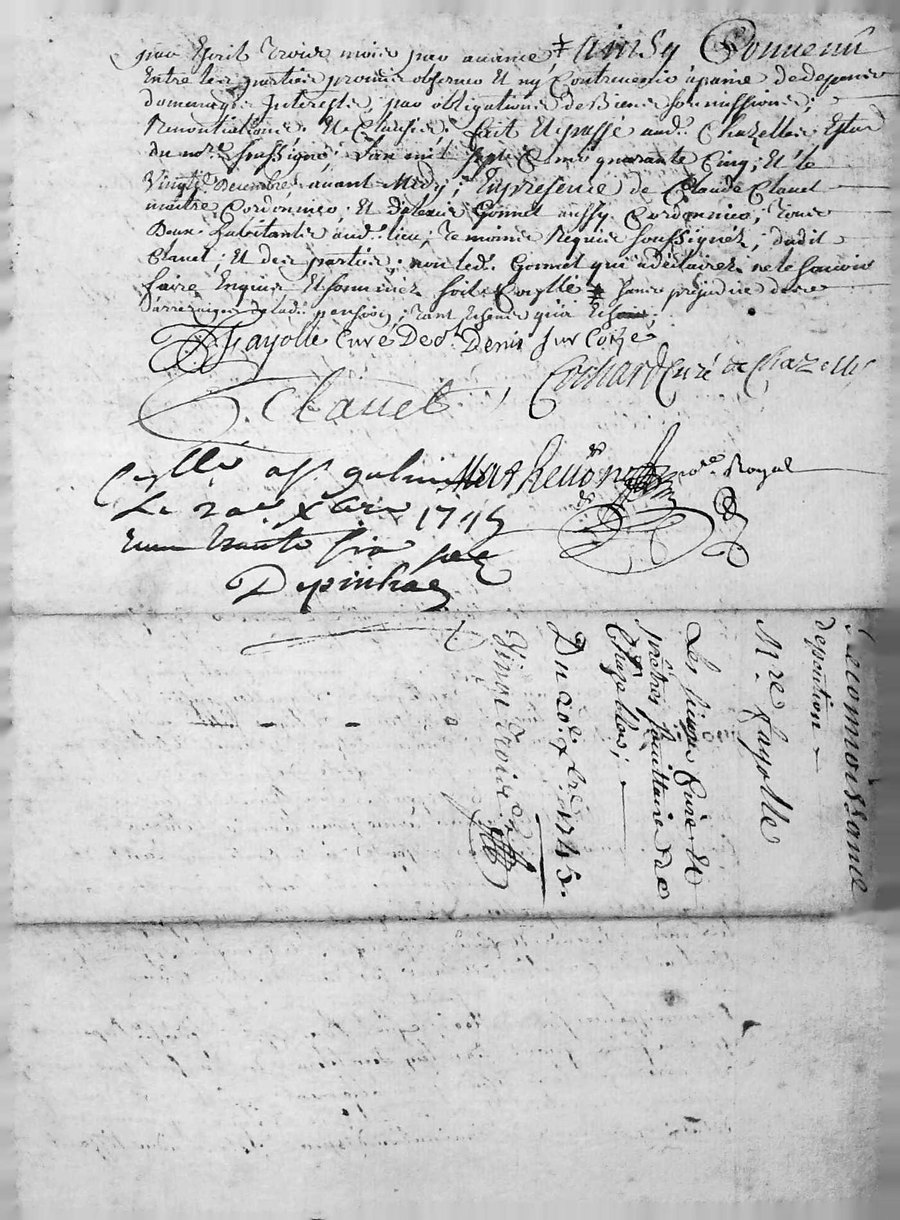 par Escrit Trois mois par auance ‡ Ainsy Conuenu
Entre les parties promis obseruer Et ny Contreuenir a peine de depens
dommages Interests, par obligations de Biens soumissions,
Renontiations. Et Clauses. fait Et passé aud. Chazelles Estude
du no.re soussigné; L'an mil sept Cent quarante Cinq, Et le
Vingt.e Decembre auant Midy; En presence de Claude Clauel
maitre Cordonnier, Et Gonnet aussy Cordonnier, Tous
Deux habitants aud. lieu, Temoins Requis soussignéz, ledit
Clauel, Et des parties; non led. Gonnet qui a déclaré ne le sauoir
faire Enquis Et sommé soit Controllé ‡ sans préjudice des
arrerages de lad. pension, tant Echeus qu'a Echoir.
Fayolle Curé De St. Denis sur Coize
C. Clauel, Cochard Curé de Chazelles
Matheuon no.re Royal
le 20e Xbre 1745
Depinhac
Reconnoissance
de pention
M.re fayolle
Les sieurs Curé Et
prêtres societaires de
Chazelles;
Du 20.e Xbre 1745.